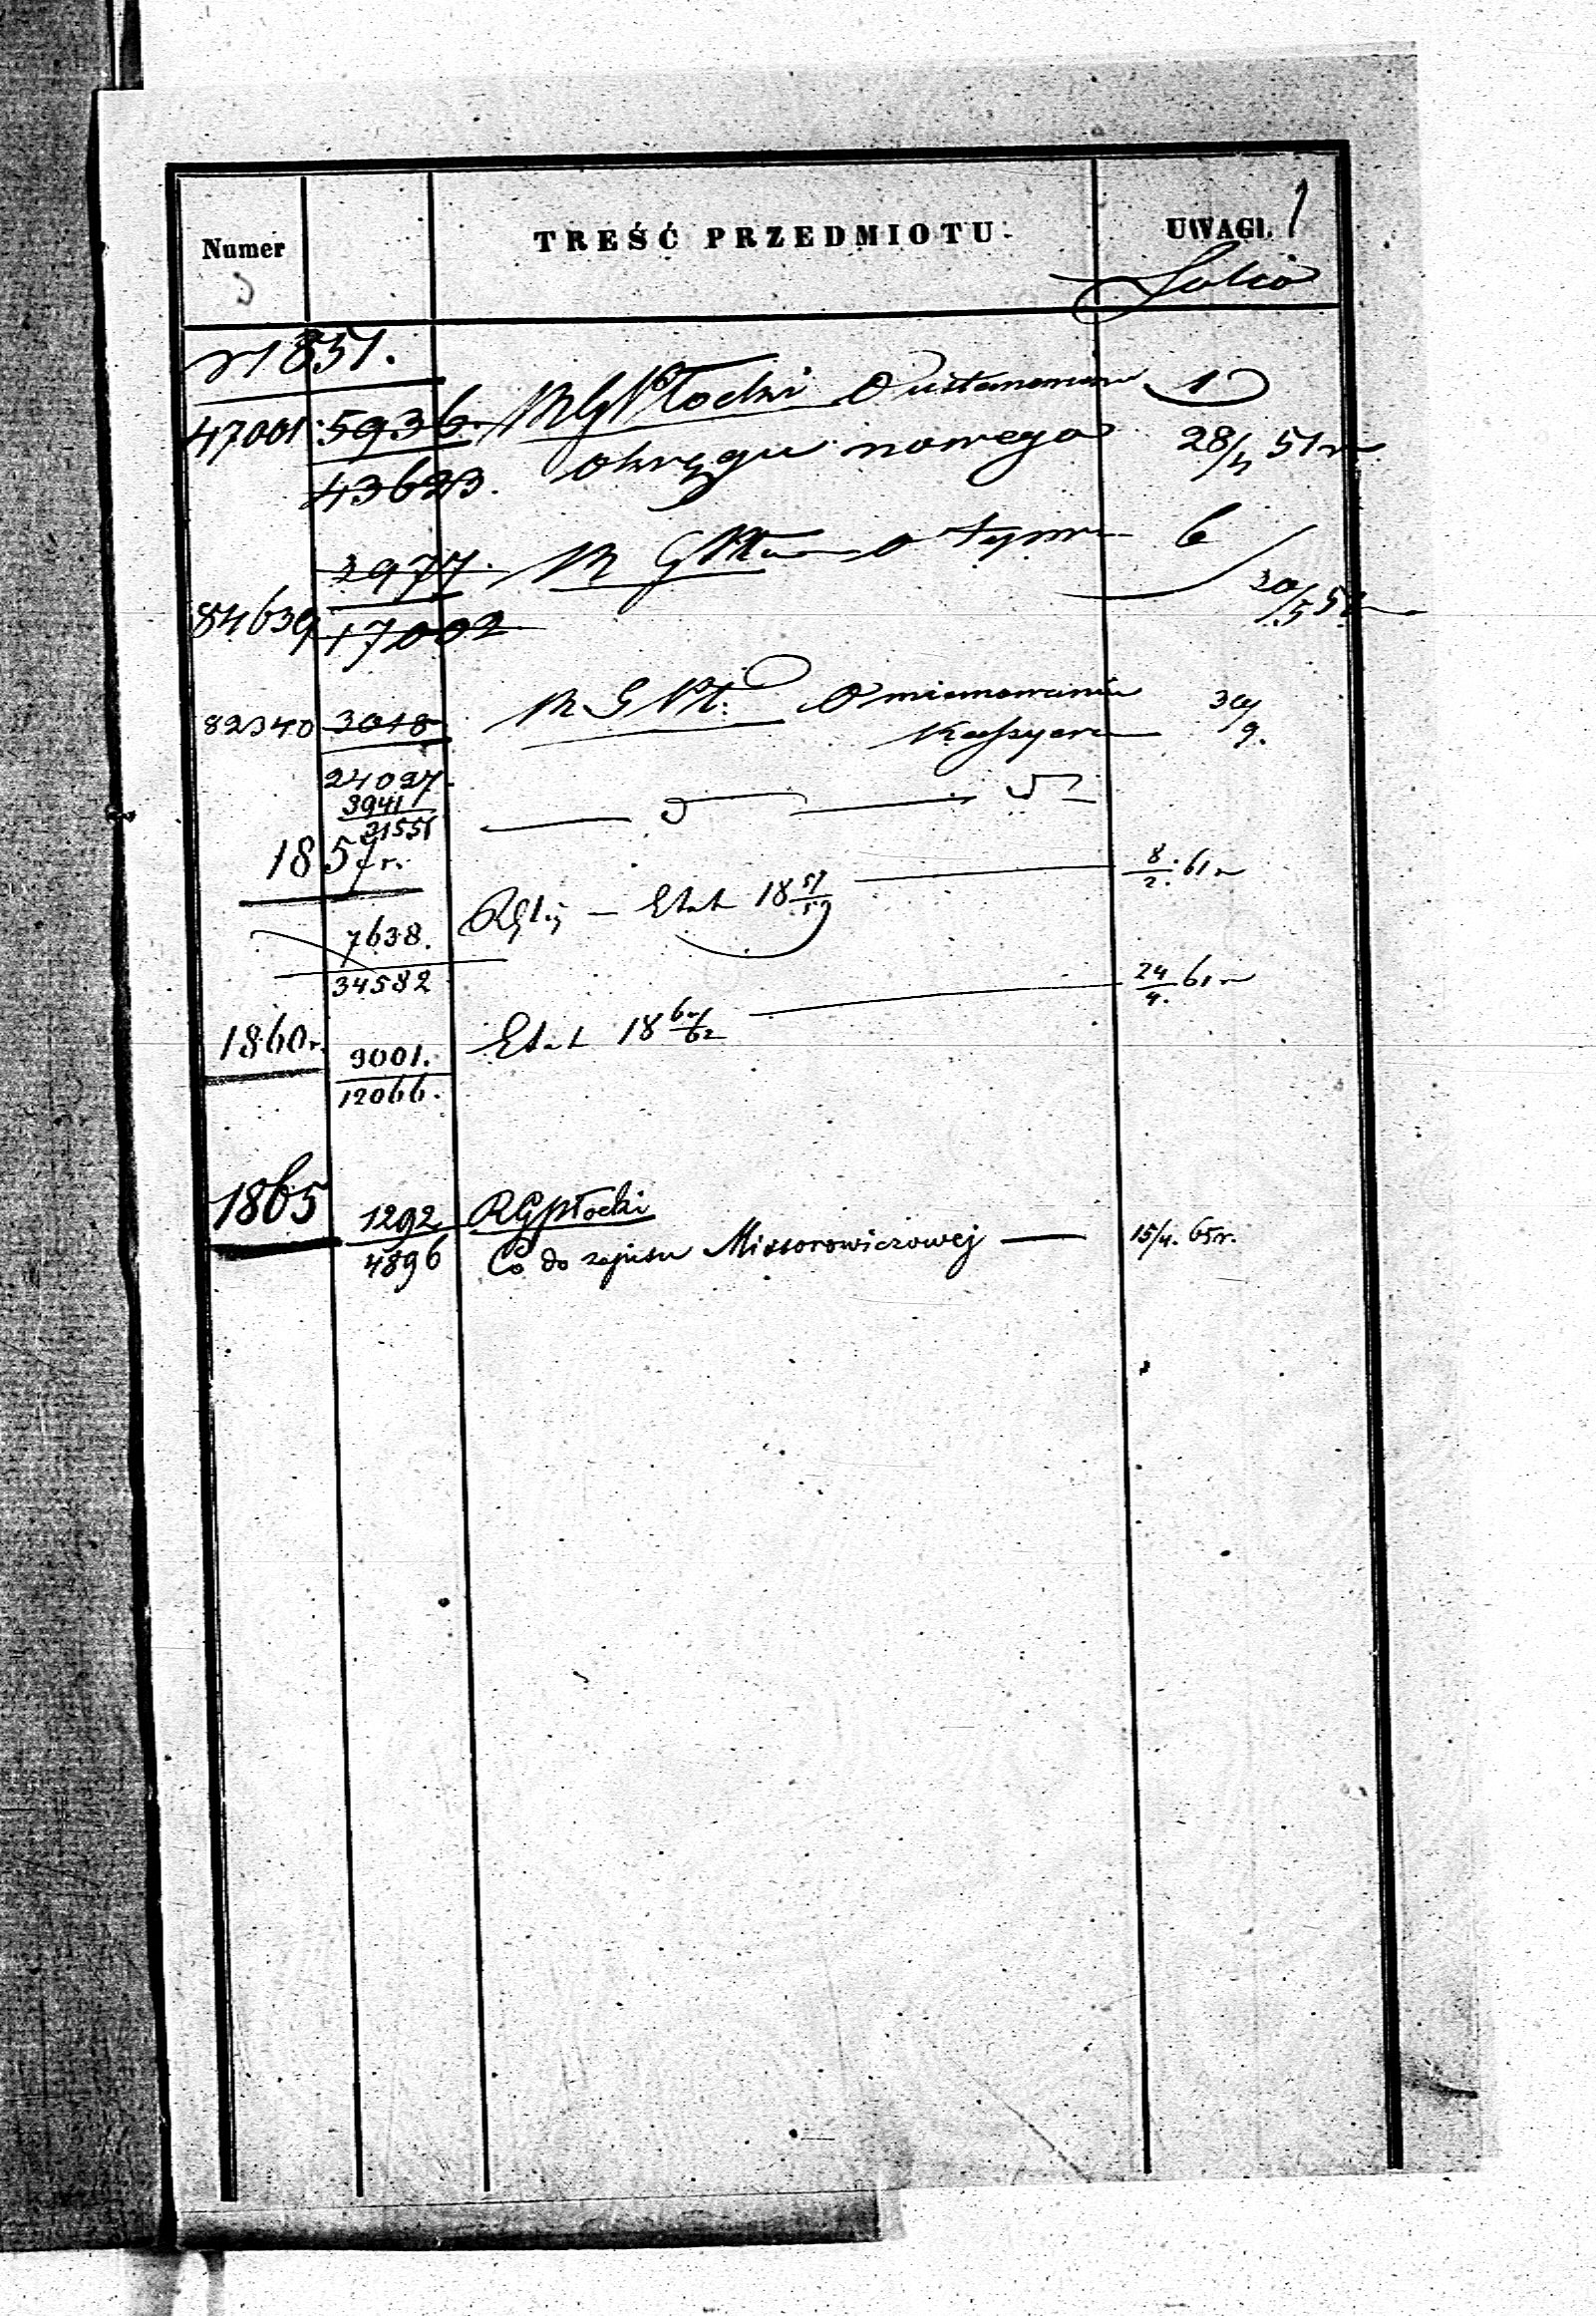 1
Numer TREŚĆ PRZEDMIOTU. UWAGI.
Folio
r 1851.
47001 5936. RGPłocki O ustanowieniu 1
43623. okręgu nowego 28/4 51 r
2977. R G Pło o tymże 6
84639 17002 20/5
82340 3018 R G Pł. O mianowaniu 30/9.
Kassyera
24027
3941
31551
1857 r.
Etat 18 57/59 8/2. 61 r
7638.
34582
24/4. 61 r
1860 r. 9001. Etat 18 60/62
12066.
1865 1292 RGPłocki
4896 Co do zapisu Missorowiczowej — 15/4. 65 r.